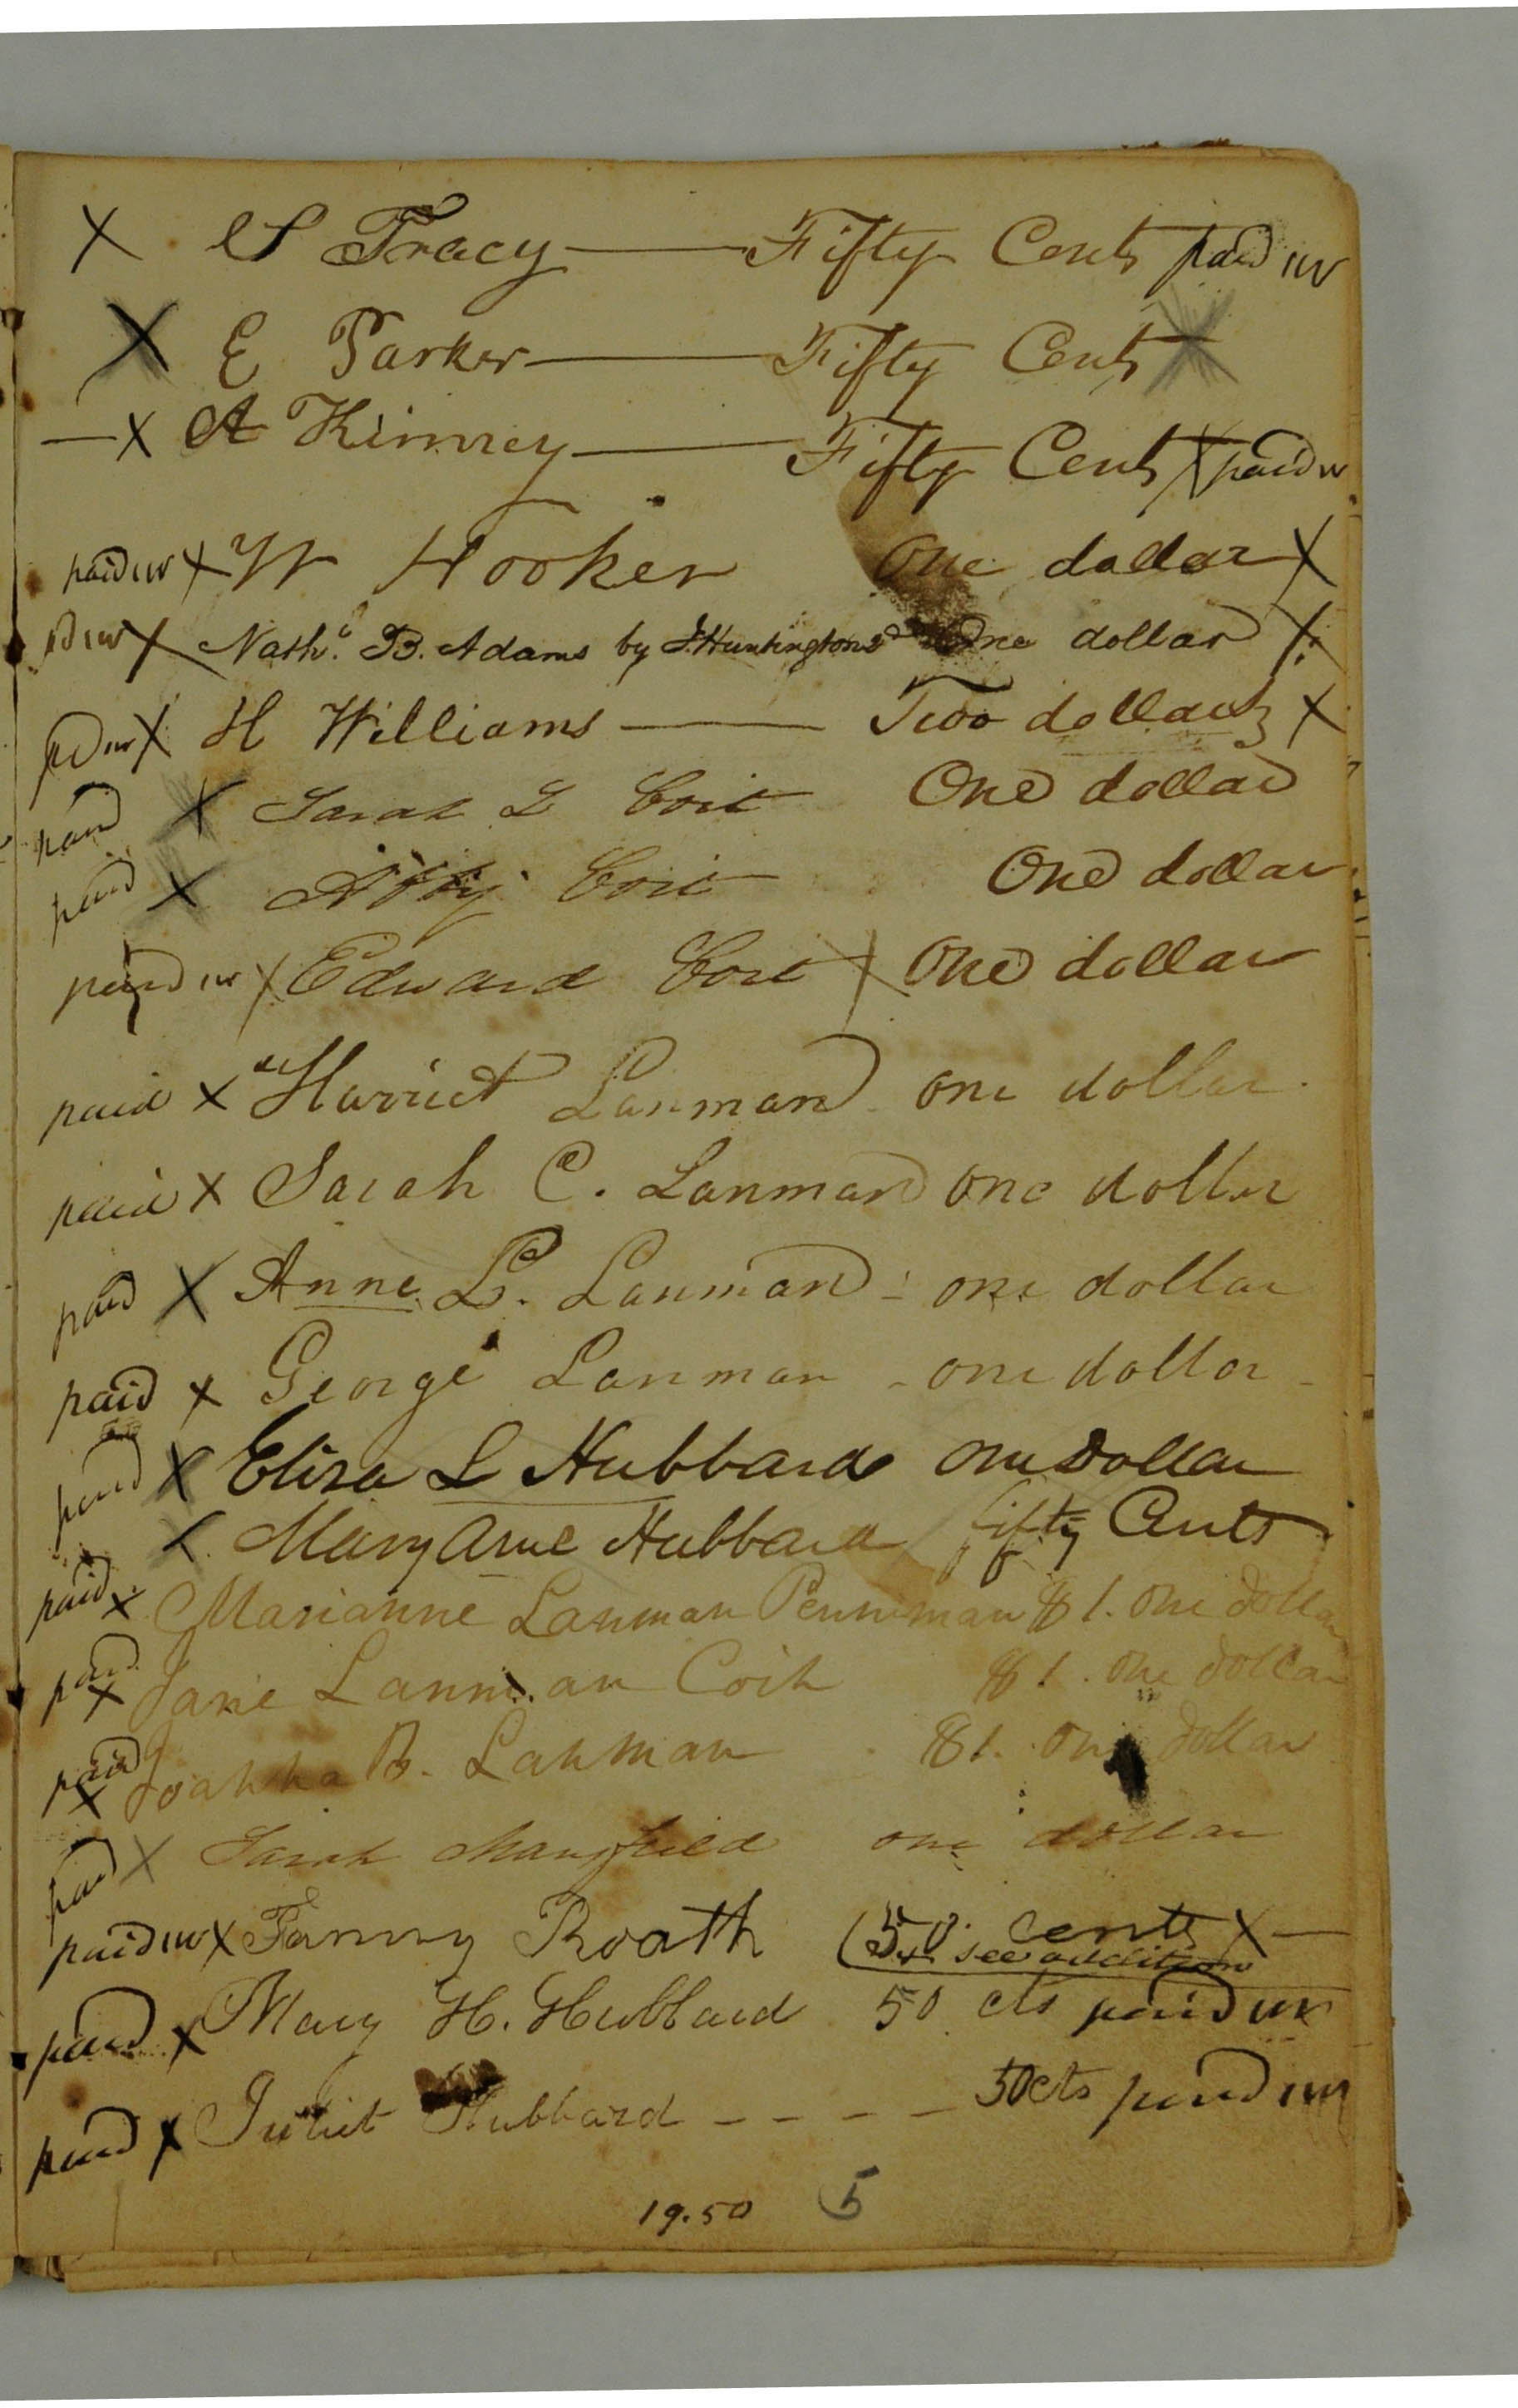 X S Tracy — Fifty Cents paid
X E Parker — Fifty Cents X
— X A Kinney — Fifty Cents X paid
paid X W Hooker One dollar X
pd X Nathl. B. Adams by J. Huntington One dollar X
pd X H Williams — Two dollars X
paid X Sarah L Coit One dollar
paid X Abby Coit One dollar
paid X Edward Coit X One dollar
paid X Harriet Lanman one dollar
paid X Sarah C. Lanman one dollar
paid X Anne L. Lanman - one dollar
paid X George Lanman - one dollar -
paid X Eliza L Hubbard One Dollar
X Mary Anne Hubbard fifty Cents
paid X Marianne Lanman Penniman $1. One dollar
paid X Jane Lanman Coit $1. One dollar
paid X Joanna B. Lanman $1. One dollar
paid X Sarah Mansfield one dollar
paid X Fanny Roath 50 cents X —
see addition
paid X Mary H. Hubbard 50 cts paid
paid X Juliet Hubbard - - - - 50 cts paid
19.50 5